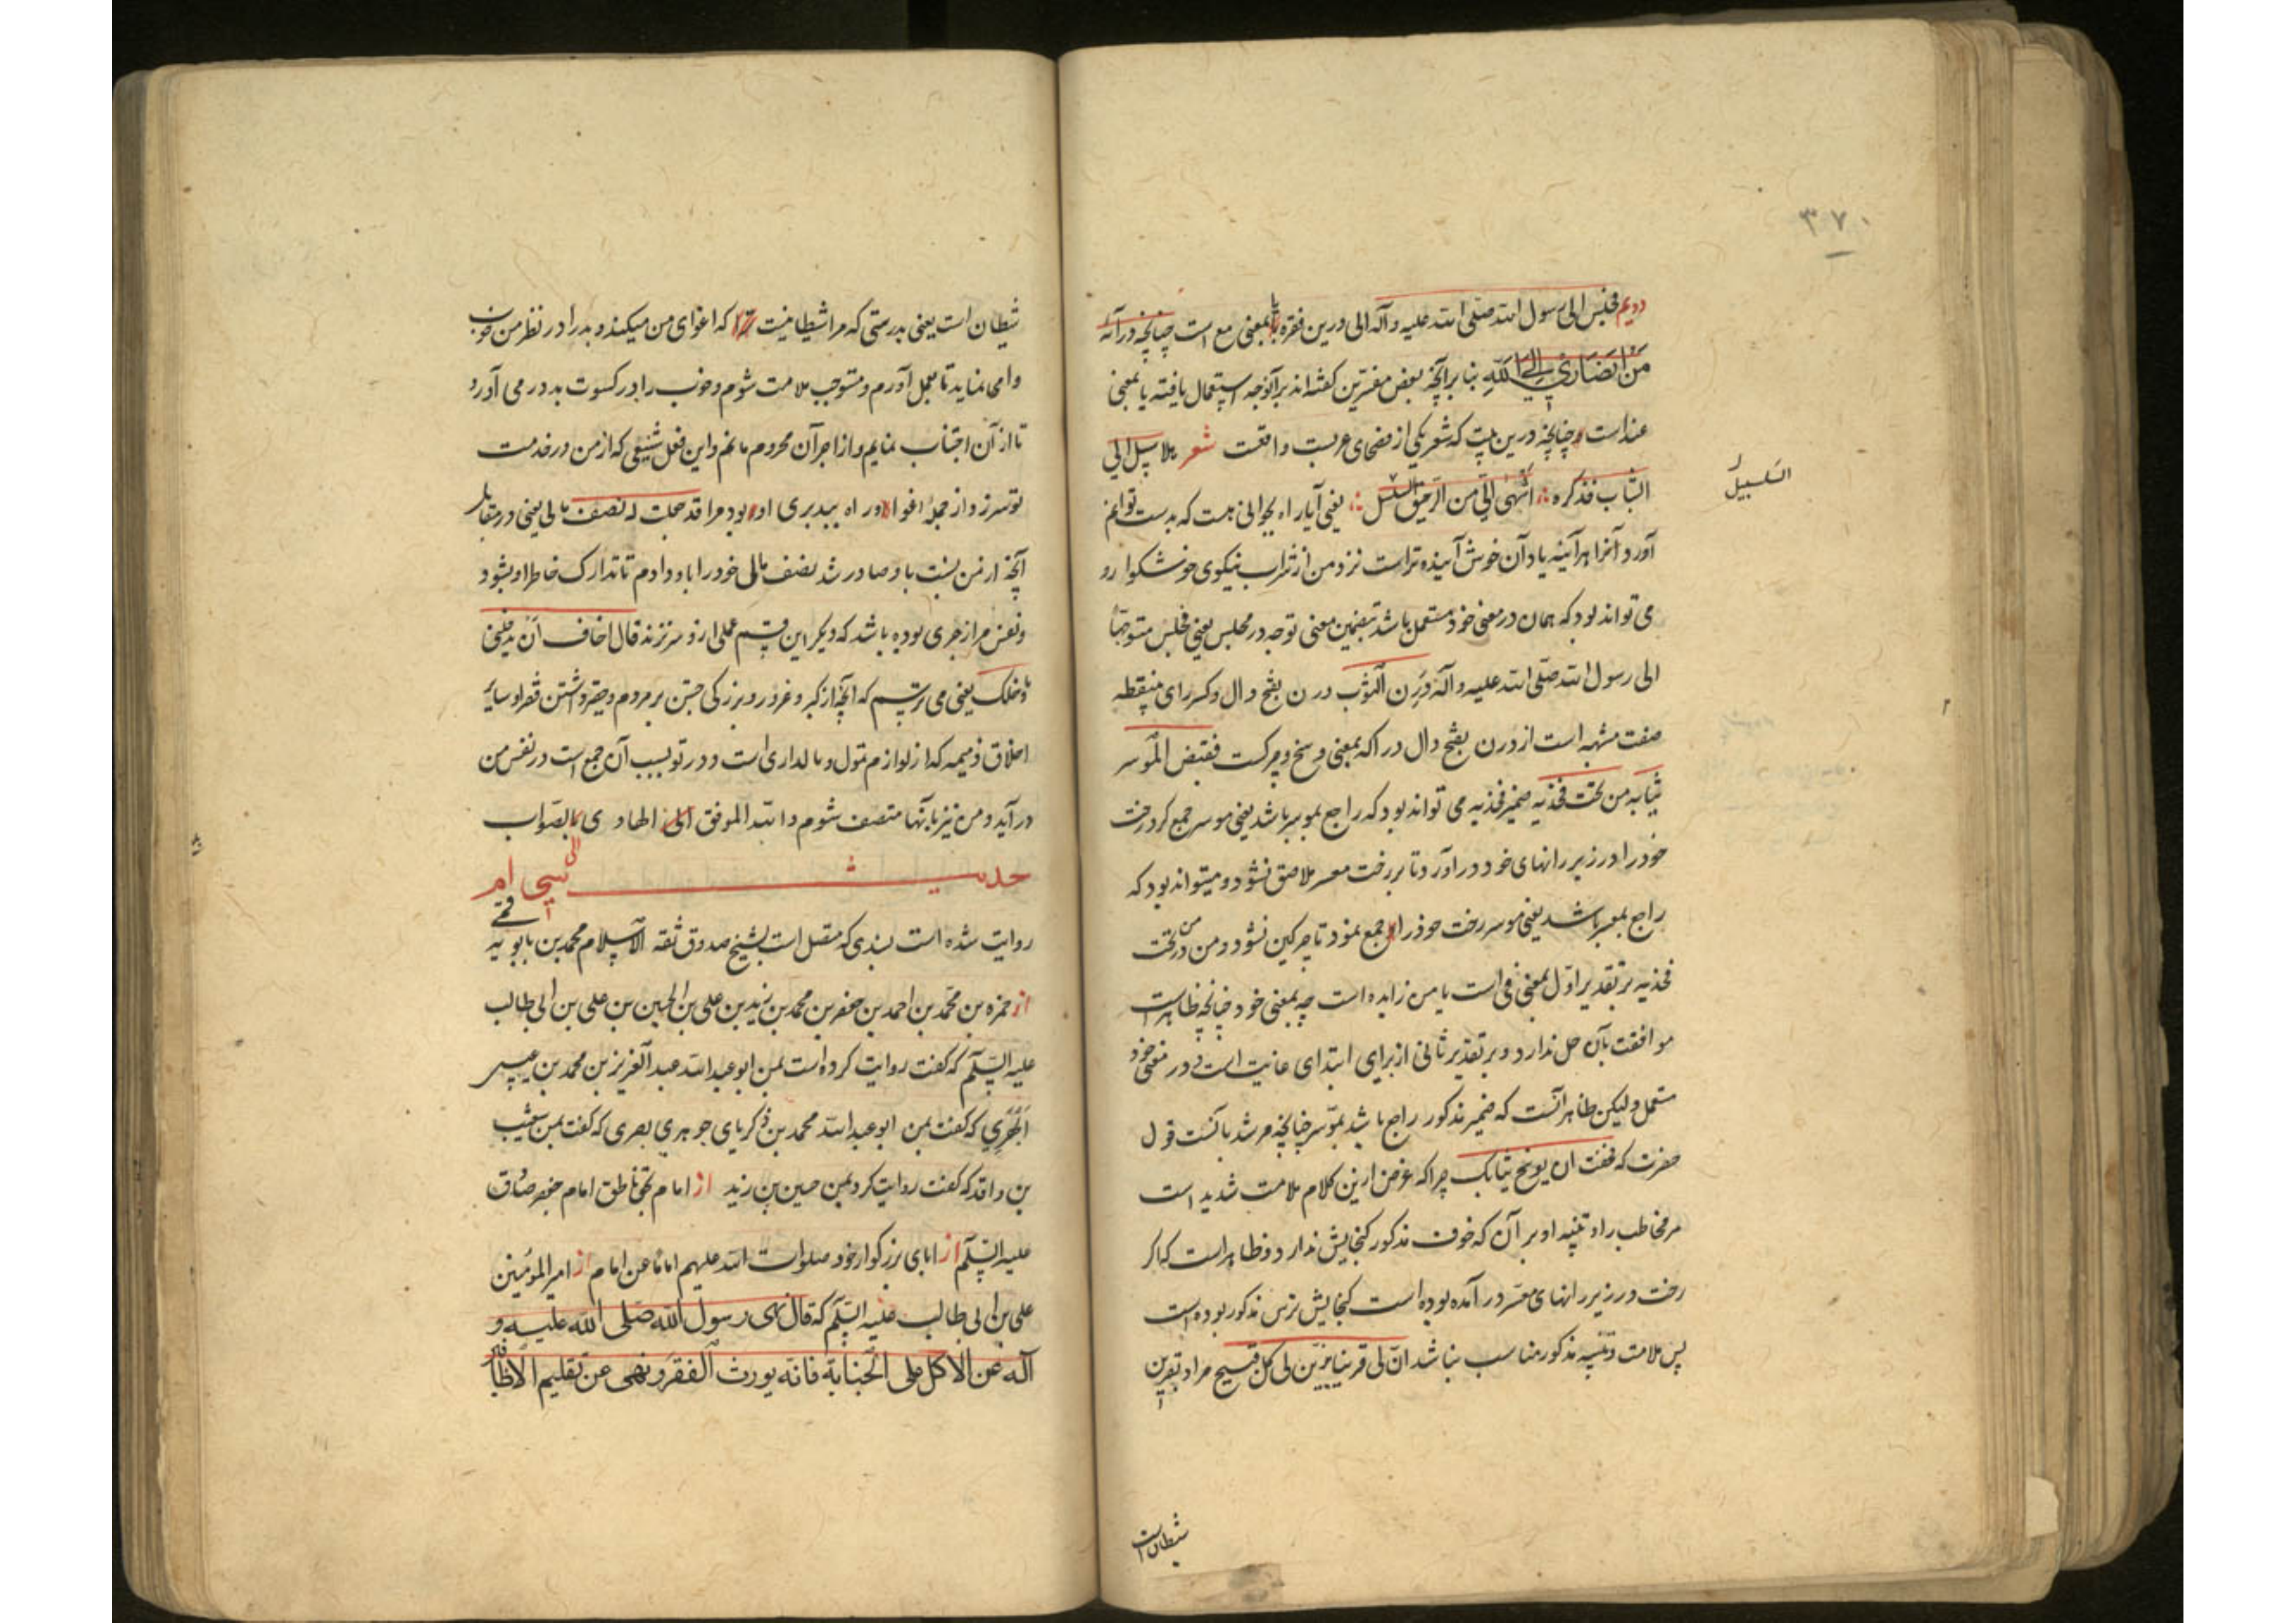 ۳۷۰
دویم فجلس الی رسول الله صلی الله علیه و آله الی درین فقره یا بمعنی مع است چنانچه در آیه
مَنْ اَنصَاری اِلَی اللهِ بنا برآنچه بعض مفسرین گفته‌اند برآنوجه استعمال یافته یا بمعنی
عند است چنانچه درین بیت که شعر یکی از فصحای عربست واقعست شعر ام لا سبیل الی
الشباب فذکره اشهی الیّ من الرحیق السلسل یعنی آیا راه بجوانی هست که بدست توانم
السلسبیل
آورد آنرا هر آینه یاد آن خوش آینده تر است نزد من از شراب نیکوی خوشگوار و
می تواند بود که همان در معنی خود مستعمل باشد بتضمین معنی توجه در مجلس یعنی فجلس متوجهاً
الی رسول الله صلی الله علیه و آله دَرِن الثوب درن بفتح دال و کسر رای منقطه
صفت مشبهه است از درن بفتح دال و را که بمعنی وسخ و چرکست فقبض الموسر
ثیابه من تحت فخذیه ضمیر فخذیه می تواند بود که راجع بموسر باشد یعنی موسر جمع کرد رخت
خود را و در زیر رانهای خود در آورد تا بر رخت معسر ملاصق نشود و میتواند بود که
راجع بمعسر باشد یعنی موسر رخت خود را جمع نمود تا چرکین نشود و من در من تحت
فخذیه بر تقدیر اول بمعنی فی است یا من زایده است چه بمعنی خود چنانچه ظاهر است
موافقت بآن حل ندارد و بر تقدیر ثانی از برای ابتدای غایت است و در معنی خود
مستعمل و لیکن ظاهر آنست که ضمیر مذکور راجع باشد بموسر چنانچه مرشد بآنست قول
حضرت که فخفت ان یوسخ ثیابک چرا که غرض ازین کلام ملامت شدید است
مر مخاطب را و تنبیه او بر آن که خوف مذکور گنجایش ندارد و ظاهر است که اگر
رخت در زیر رانهای معسر در آمده بوده است گنجایش ترس مذکور بوده است
پس ملامت و تنبیه مذکور مناسب نباشد انّ لی قرینا یزین لی کل قبیح مراد بقرین
شیطان است
شیطان است یعنی بدرستی که مرا شیطانیست که اغوای من میکند و بد را در نظر من خوب
وا می نماید تا بعمل آورم و مستوجب ملامت شوم و خوب را در کسوت بد در می آورد
تا از آن اجتناب نمایم و از اجر آن محروم مانم و این فعل شنیعی که از من در خدمت
تو سرزد از جمله اغوا و راه ببدبری او بود مرا قد جعلت له نصف مالی یعنی در مقابل
آنچه از من نسبت باو صادر شد نصف مالی خود را باو دادم تا تدارک خاطر او بشود
و نفس مرا زجری بوده باشد که دیگر این قسم عملی از و سر نزند قال اخاف ان یدخلنی
ما دخلک یعنی می ترسم که آنچه از کبر و غرور و بزرگی جستن بر مردم و حقیر داشتن فقرا و سایر
اخلاق ذمیمه که از لوازم تمول و مالداری است و در تو بسبب آن جمع است در نفس من
در آید و من نیز بآنها متصف شوم و الله الموفق الهادی الی الصواب
حدیث سی ام
روایت شده است بسندی که متصل است بشیخ صدوق ثقه الاسلام محمد بن بابویه قمی
از حمزه بن محمد بن احمد بن جعفر بن محمد بن زید بن علی بن الحسین بن علی بن ابی طالب
علیه السلام که گفت روایت کرده است بمن ابو عبد الله عبد العزیز بن محمد بن عیسی
اَبهَری که گفت بمن ابو عبد الله محمد بن ذکریای جوهری بصری که گفت بمن شعیب
بن واقد که گفت روایت کرد بمن حسین بن زید از امام بحق ناطق امام جعفر صادق
علیه السلام از ابای بزرگوار خود صلوات الله علیهم اماماً عن امام از امیر المؤمنین
علی بن ابی طالب علیه السلام که قال نهی رسول الله صلی الله علیه و
آله عن الاکل علی الجنابة فانه یورث الفقر و نهی عن تقلیم الاظفار